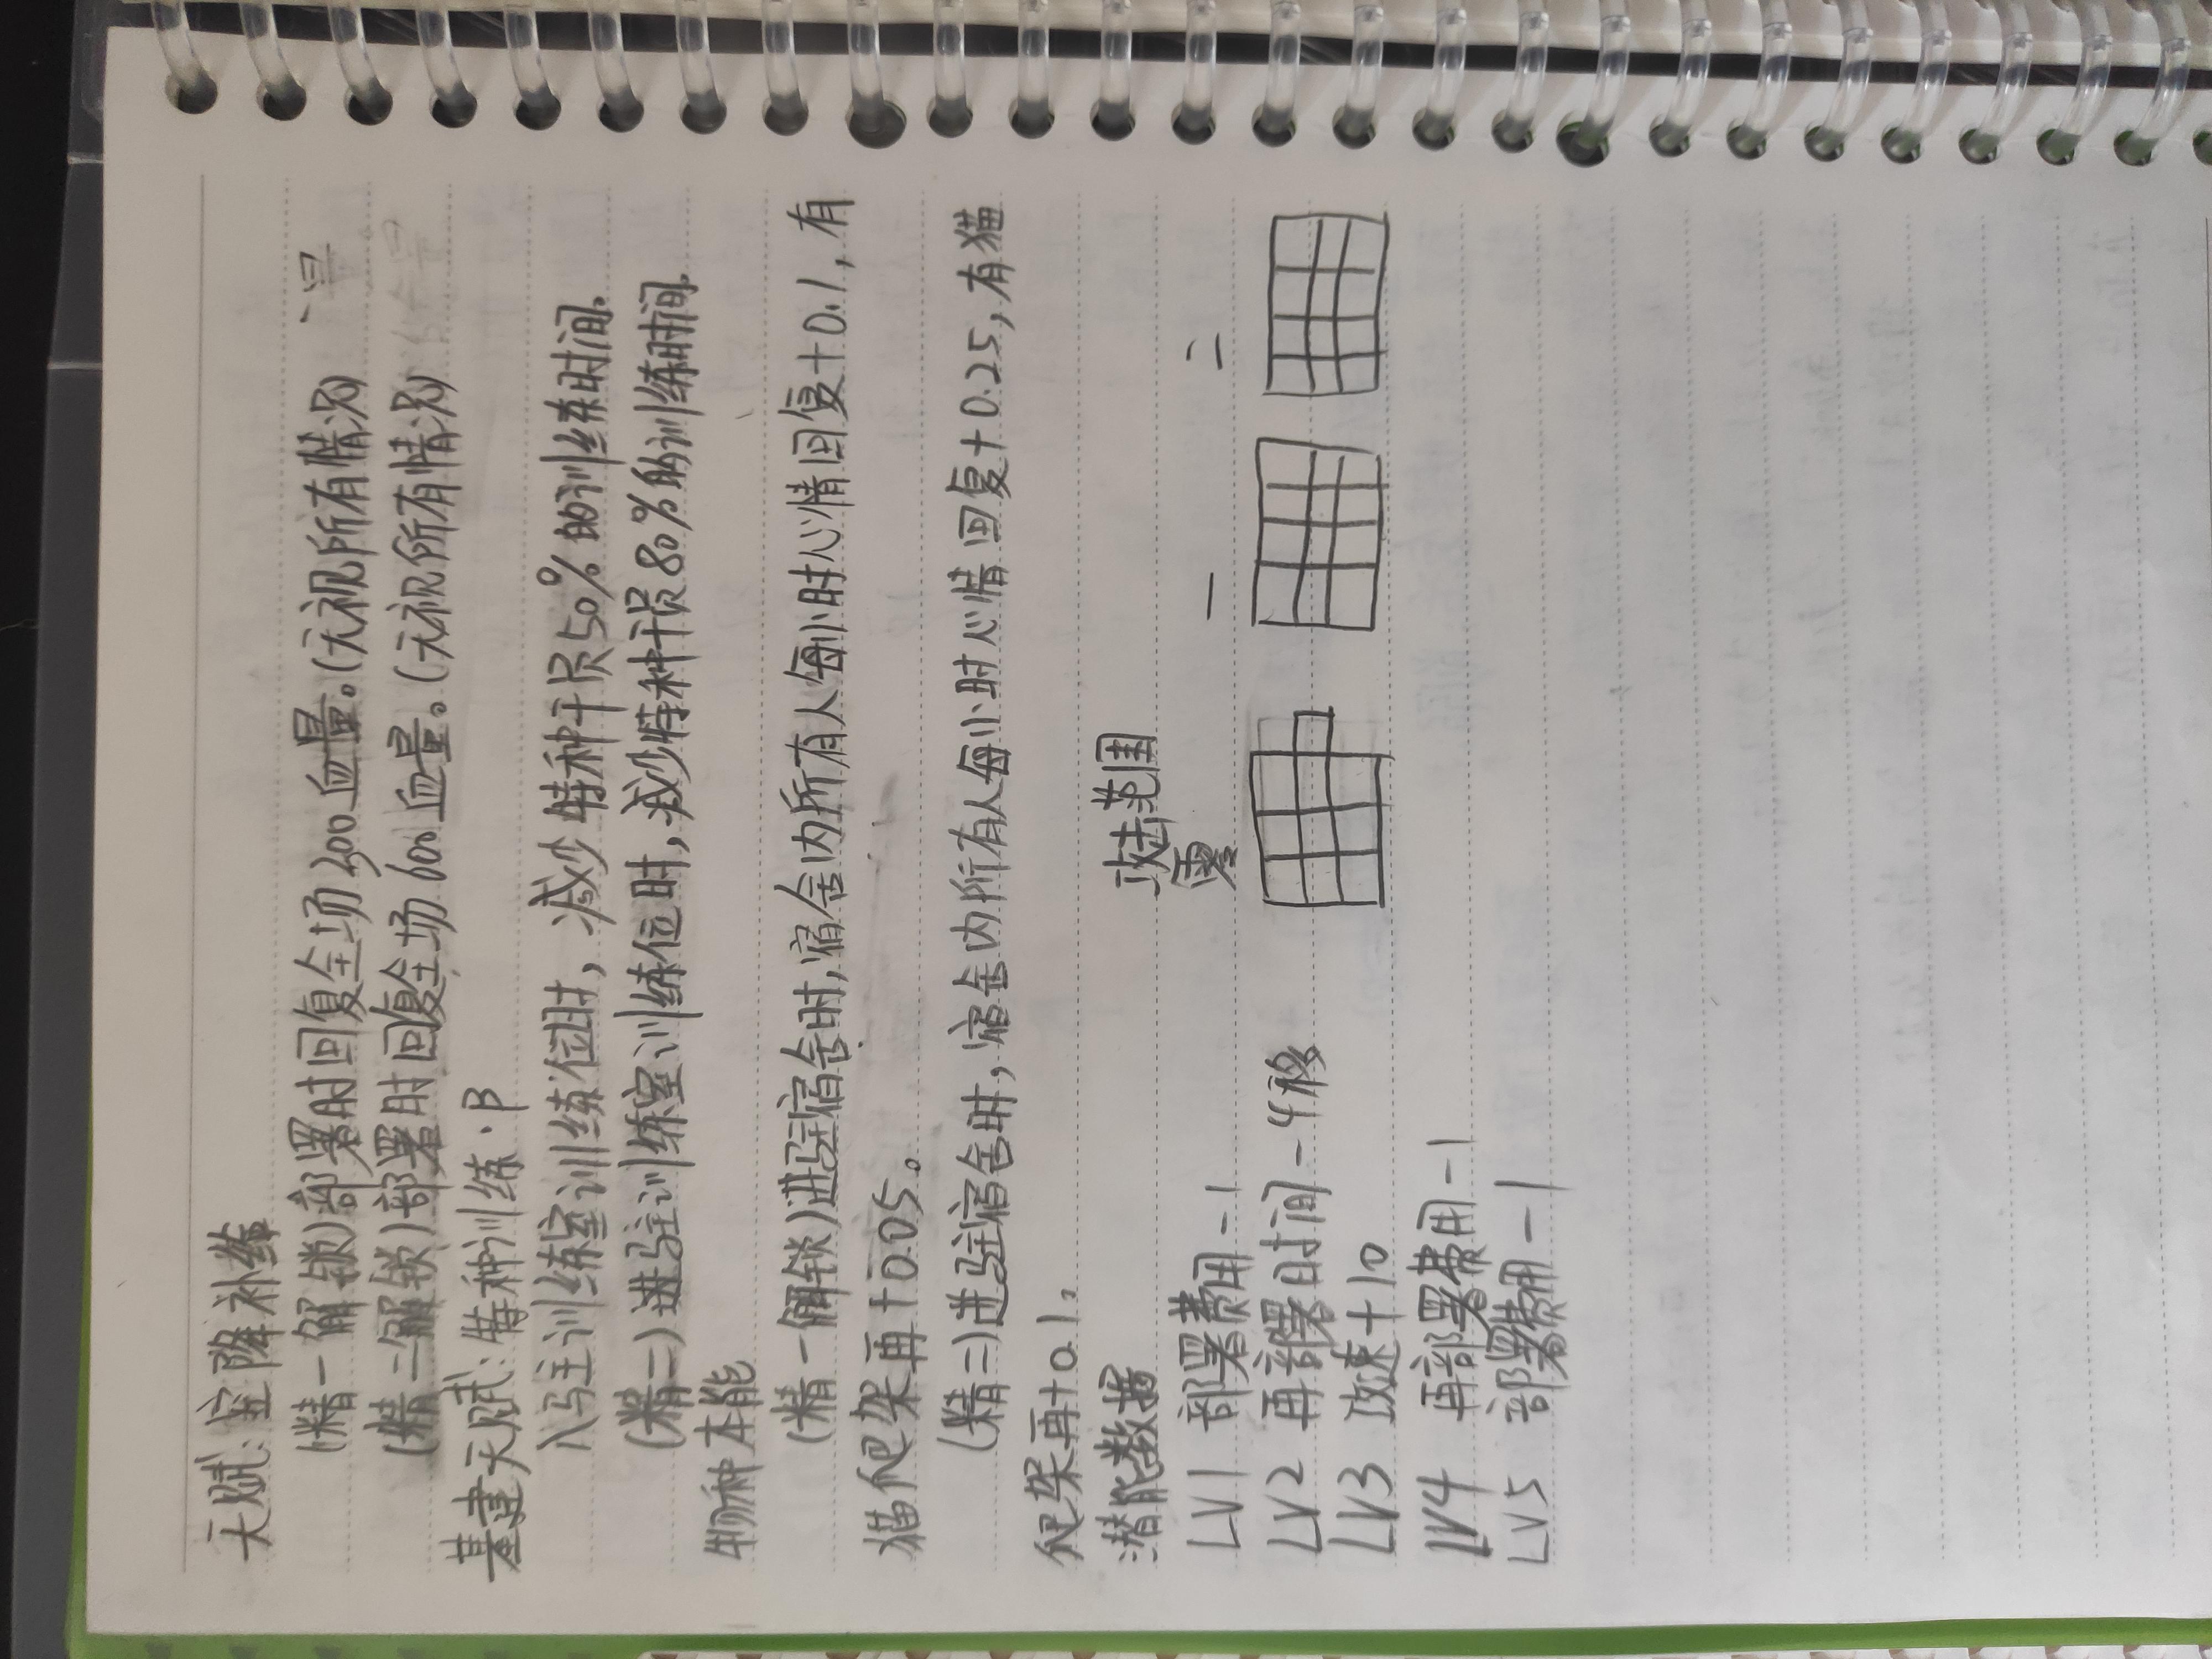 天赋:空降补给
(精一解锁)部署时回复全场300血量。(无视所有情况)
(精二解锁)部署时回复全场600血量。(无视所有情况)
基建天赋:特种训练·β
进驻训练室训练位时，减少特种干员50%的训练时间.
(精二)进驻训练室训练位时,减少特种干员80%的训练时间.
物种本能
(精一解锁)进驻宿舍时,宿舍内所有人每小时心情回复+0.1,有
猫爬架再+0.05。
(精二)进驻宿舍时,宿舍内所有人每小时心情回复+0.25,有猫
爬架再+0.1。
潜能数据 攻击范围
零 一 二
LV1 部署费用-1
LV2 再部署时间-4秒
LV3 攻速+10
LV4 再部署费用-1
LV5 部署费用-1